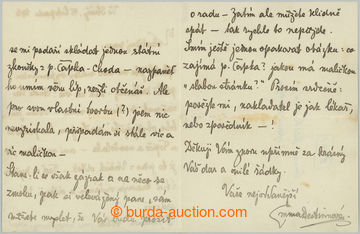 se mi podaří skládat jednou státní
zkoušky z p. Čapka-Choda – napřaněl
ho umím věru líp, nežli otčenáš. Ale
pro svou vlastní tvorbu (?) jsem nic
nezískala, připadám si stále víc a
víc maličkou –
Stane-li se však zázrak a na něco se
zmohu, pak si velevážený pane, sám
můžete myslet, že Vás budu prosit
o radu – Zatím ale můžete klidně
spát – tak rychle to nepůjde.
Smím ještě jednou opakovat otázku: co
zajímá p. Čapka? jakou má maličkou
"slabou stránku?" Prosím srdečně:
povězte mi, nakladatel je jak lékař,
nebo zpovědník – !
Děkuji Vám zcela upřímně za krásný
Váš dar a milé řádky.
Vaše nejoddanější
© burda-auction.com